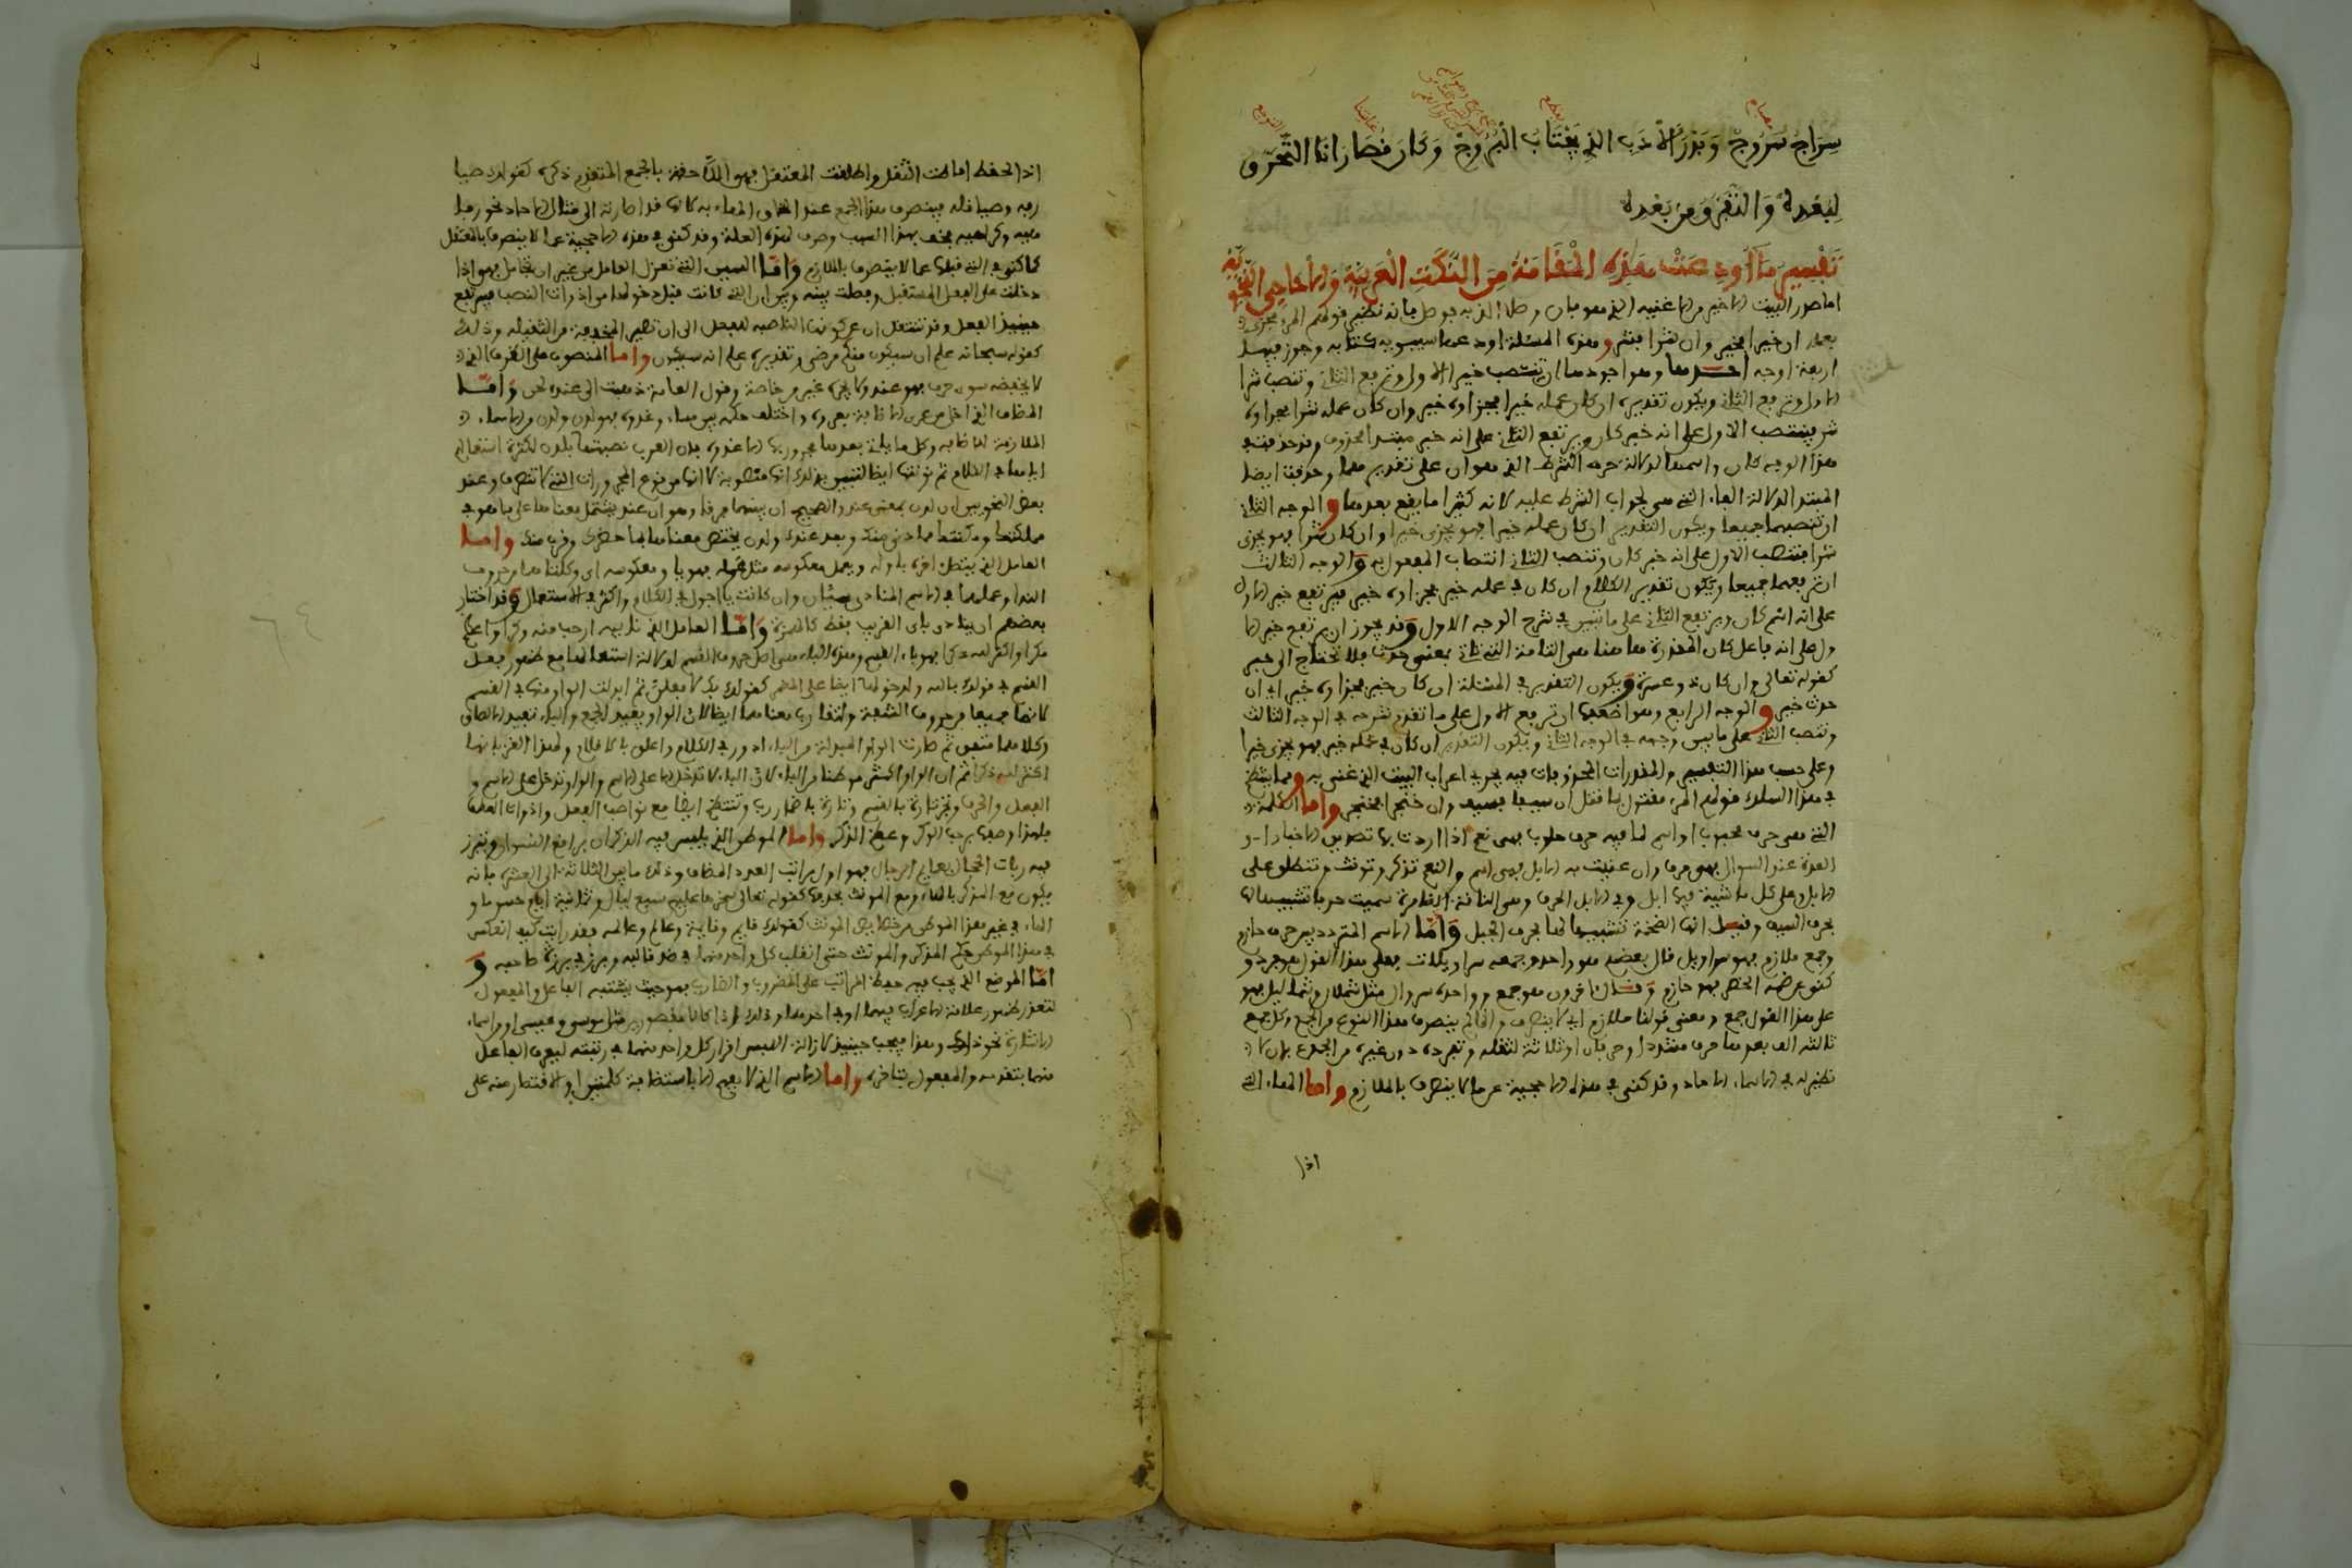 سِرَاجُ سَرُوجْ وَبَدْرُ الْأَدَبِ الذِي يَجْتَابُ الْبُرُوجْ وَكَانَ قُصَارَانَا التَّحَرُّقَ
لِبُعْدِهِ وَالتَّفَرُّقَ مِن بَعْدِهِ
تَفْسِيرُ مَا أُودِعَتْ هَذِهِ الْمَقَامَةُ مِنَ النُّكَتِ الْعَرَبِيَّةِ وَالْأَحَاجِي النَّحْوِيَّةِ
اما صدر البيت الاخير من الاغنية الذي هو فان وصلا الذ به فوصل فانه نظير قولهم المرء مجزي
بعمله ان خيرا فخير وان شرا فشر وهذه المسئلة اودعها سيبويه كتابه وجوز فيها
اربعة اوجه احدها وهو اجودها ان تنصب خيرا الاول وترفع الثاني وتنصب شرا
الاول وترفع الثاني ويكون تقديره ان كان عمله خيرا فجزاؤه خير وان كان عمله شرا فجزاؤه
شر فينتصب الاول على انه خبر كان ويرتفع الثاني على انه خبر مبتدا محذوف وقد حذفت في
هذا الوجه كان واسمها لدلالة حرف الشرط الذي هو ان على تقديرهما وحذفت ايضا
المبتدا لدلالة الفاء التي هي لجواب الشرط عليه لانه كثيرا ما يقع بعدها والوجه الثاني
ان تنصبهما جميعا ويكون التقدير ان كان عمله خيرا فهو يجزى خيرا وان كان شرا فهو يجزى
شرا فتنصب الاول على انه خبر كان وتنصب الثاني انتصاب المفعول به والوجه الثالث
ان ترفعهما جميعا ويكون تقدير الكلام ان كان في عمله خير فجزاؤه خير فيرتفع خير الاول
على انه اسم كان ويرتفع الثاني على ما تبين في شرح الوجه الاول وقد يجوز ان يرتفع خير الا
ول على انه فاعل كان المقدرة هاهنا هي التامة التي تاتي بمعنى حدث فلا تحتاج الى خبر
كقوله تعالى وان كان ذو عسرة ويكون التقدير في المسئلة ان كان خير فجزاؤه خير اي ان
حدث خير والوجه الرابع وهو اضعفها ان ترفع الاول على ما تقدم شرحه في الوجه الثالث
وتنصب الثاني على ما بين وجهه في الوجه الثاني ويكون التقدير ان كان في عمله خير فهو يجزى خيرا
وعلى حسب هذا التفسير والمقدرات المحذوفات فيه يجري اعراب البيت الذي غنى به ومما ينتظم
في هذا السلك قولهم المرء مقتول بما قتل ان سيفا فسيف وان خنجرا فخنجر واما الكلمة
التي هي حرف محبوب او اسم لما فيه حرف حلوب فهي نعم اذا اردت بها تصديق الاخبار او
العدة عند السوال فهي حرف وان عنيت به الابل فهي اسم والنعم تذكر وتونث وتطلق على
الابل وعلى كل ماشية فيها ابل وفي الابل الحرف وهي الناقة الضامرة سميت حرفا تشبيها لها
بحرف السيف وقيل انها الضخمة تشبيها لها بحرف الجبل وَأمّا الاسم المتردد بين حرف حازم
وجمع ملازم فهو سراويل قال بعضهم هو واحد وجمعه سراويلات فعلى هذا القول هو مفرد و
كنى عن ضمه الخصر بهو حازم وقال اخرون هو جمع وواحده سروال مثل شملال وشماليل فهو
على هذا القول جمع ومعنى قولنا ملازم اي لا ينصرف وانما لم ينصرف هذا النوع من الجمع وكل جمع
ثالثه الف بعدها حرف مشدد او حرفان او ثلاثة لثقله وتفرده دون غيره من الجموع بان لا
نظير له في الاسماء الاحاد وقد كنى في هذه الاحجية عما لا ينصرف بالملازم واما الهاء التي
اذا
اذا التحقت اماطت الثقل واطلقت المعتقل فهي اللاحقة بالجمع المتقدم ذكره كقولك صيا
رفه وصياقله فينصرف هذا الجمع عند التحاق الهاء به لانها قد اصارته الى مثال الاحاد نحو رفا
هيه وكراهيه فخف بهذا السبب وصرف لهذه العلة وقد كنى في هذه الاحجية عما لا ينصرف بالمعتقل
كما كنى في التي قبلها عما لا ينصرف بالملازم وَأمّا السين التي تعزل العامل من غير ان تجامل فهو اذا
دخلت على الفعل المستقبل وفصلت بينه وبين ان التي كانت قبل دخولها من ادوات النصب فيرتفع
حينئذ الفعل وتنتقل ان عن كونها الناصبة للفعل الى ان تصير المخففة من الثقيله وذلك
كقوله سبحانه علم ان سيكون منكم مرضى وتقديره علم انه سيكون واما المنصوب على الظرف الذي
لا يخفضه سوى حرف فهو عند ولا يجره غير من خاصة وقول العامة ذهبت الى عنده لحن وَأمّا
المضاف الذي اخل من عرى الاضافة بعروه واختلف حكمه بين مساء وغدوه فهو لدن ولدن من الاسماء
الملازمة للاضافه وكل ما ياتي بعدها مجرور بها الا غدوه فان العرب نصبتها بلدن لكثرة استعمالهم
اياها في الكلام ثم نونتها ايضا ليتبين بذلك انها منصوبة لا انها من نوع المجرورات التي لا تنصرف وعند
بعض النحويين ان لدن بمعنى عند والصحيح ان بينهما فرقا وهو ان عند يشتمل معناها على ما هو في
ملكتك ومكنتك مما دنى منك وبعد عنك ولدن يختص معناها بما حضرك وقرب منك واما
العامل الذي يتصل اخره باوله ويعمل معكوسه مثل عمله فهو يا ومعكوسه اي وكلتاهما من حروف
الندا وعملهما في الاسم المنادى سيان وان كانت يا اجول في الكلام واكثر في الاستعمال وقد اختار
بعضهم ان ينادى باي القريب فقط كالهمزة وَأمّا العامل الذي نايبه ارحب منه وكرا واعظم
مكرا واكثر لله ذكرا فهو باء القسم وهذه الباء هي اصل حروف القسم لدلالة استعمالها مع ظهور فعل
القسم في قولك بالله ولدخولها ايضا على المضمر كقولك بك لافعلن ثم ابدلت الواو منها في القسم
لانهما جميعا من حروف الشفة ولتقارب معناهما ايضا لان الواو يفيد الجمع والباء تفيد الالصاق
وكلاهما متفق ثم صارت الواو المبدلة من الباء ادور في الكلام واعلق بالاقلام ولهذا الغز بانها
اكثر لله ذكرا ثم ان الواو اكثر موطنا من الباء لان الباء لا تدخل الا على الاسم والواو تدخل على الاسم و
الفعل والحرف وتجر تارة بالقسم وتارة باضمار رب وتنتظم ايضا مع نواصب الفعل وادوات العطف
فلهذا وصفها برحب الوكر وعظم المكر واما الموطن الذي يلبس فيه الذكران براقع النسوان وتبرز
فيه ربات الحجال بعمايم الرجال فهو اول مراتب العدد المضاف وذلك ما بين الثلاثة الى العشرة فانه
يكون مع المذكر بالهاء ومع المونث بحذفها كقوله تعالى سخرها عليهم سبع ليال وثمانية ايام حسوما و
الهاء في غير هذا الموطن من خصايص المونث كقولك قايم وقايمة وعالم وعالمه فقد رايت كيف انعكس
في هذا الموطن حكم المذكر والمونث حتى انقلب كل واحد منهما في ضد قالبه وبرز في بزة صاحبه وَ
أمّا الموضع الذي يجب فيه حفظ المراتب على المضروب والضارب فهو حيث يشتبه الفاعل والمفعول
لتعذر ظهور علامة الاعراب فيهما او في احدهما وذلك اذا كانا مقصورين مثل موسى وعيسى او من اسماء
الاشارة نحو ذاك وهذا فيجب حينئذ لازالة اللبس اقرار كل واحد منهما في رتبته ليعرف الفاعل
منهما بتقدمه والمفعول بتاخره واما الاسم الذي لا يفهم الا باستضافة كلمتين او الاقتصار منه على